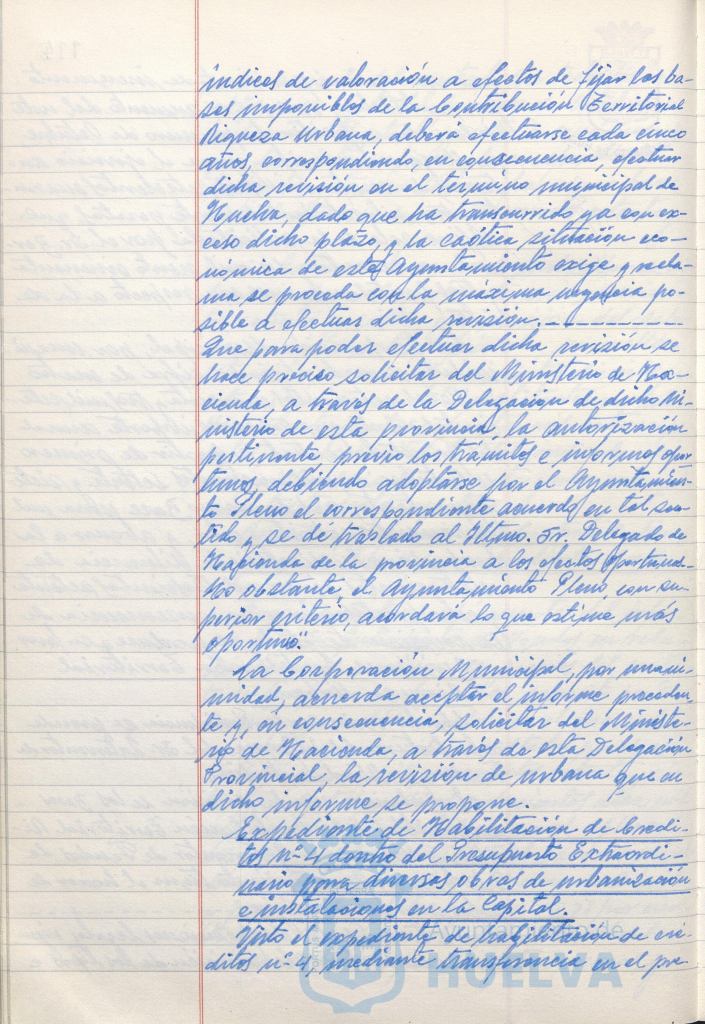 índices de valoración a efectos de fijar las ba-
ses imponibles de la Contribución Territorial
Riqueza Urbana, deberá efectuarse cada cinco
años, correspondiendo, en consecuencia, efectuar
dicha revisión en el término municipal de
Huelva, dado que ha transcurrido ya con ex-
ceso dicho plazo, y la caótica situación eco-
nómica de este Ayuntamiento exige y recla-
ma se proceda con la máxima urgencia po-
sible a efectuar dicha revisión.----------
Que para poder efectuar dicha revisión se
hace preciso solicitar del Ministerio de Ha-
cienda, a través de la Delegación de dicho Mi-
nisterio de esta provincia, la autorización
pertinente previo los trámites e informes opor-
tunos, debiendo adoptarse por el Ayuntamien-
to Pleno el correspondiente acuerdo en tal sen-
tido y se dé traslado al Iltmo. Sr. Delegado de
Hacienda de la provincia a los efectos oportunos.-
No obstante, el Ayuntamiento Pleno, con su-
perior criterio, acordará lo que estime más
oportuno".
La Corporación Municipal, por unani-
midad, acuerda aceptar el informe preceden-
te y, en consecuencia, solicitar del Ministe-
rio de Hacienda, a través de esta Delegación
Provincial, la revisión de urbana que en
dicho informe se propone.
Expediente de Habilitación de Crédi-
tos nº 4 dentro del Presupuesto Extraordi-
nario para diversas obras de urbanización
e instalaciones en la Capital.
Visto el expediente de habilitación de cré-
ditos nº 4, mediante transferencia en el pre-
Ayuntamiento de
HUELVA